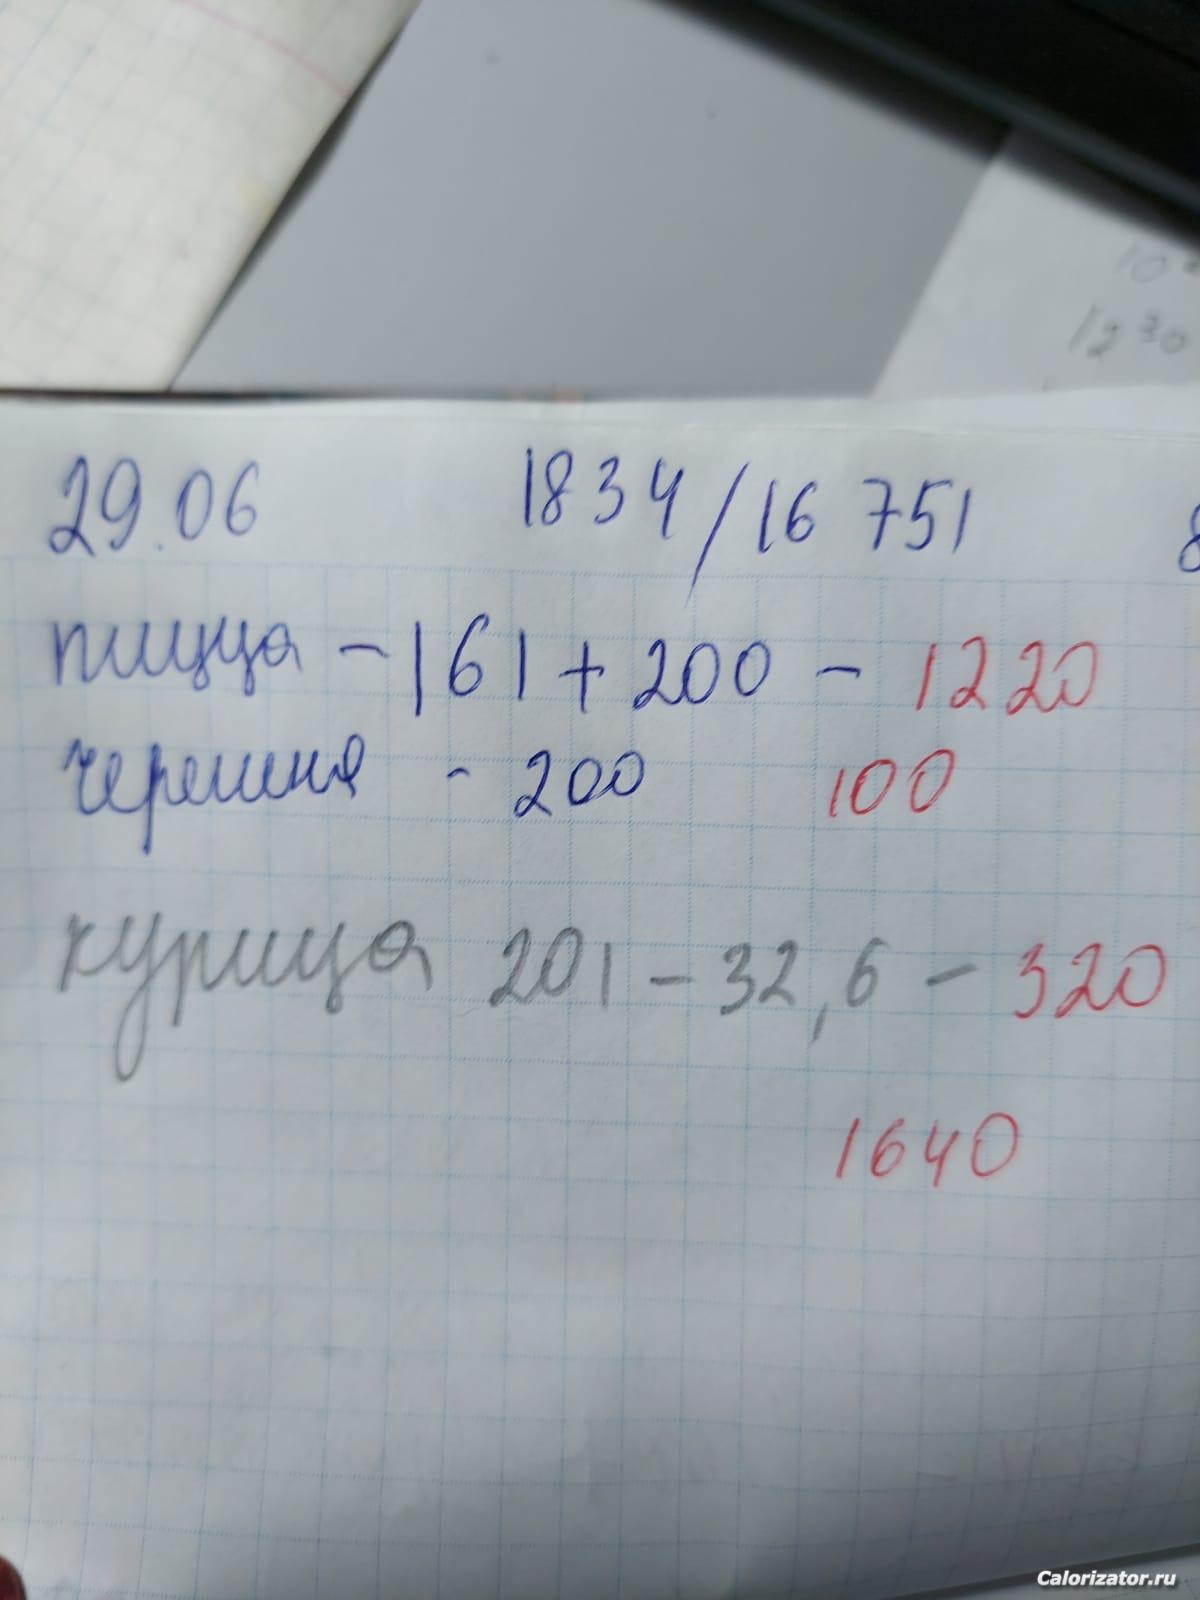 12 30
29.06 1834/16 751
пицца - 161 + 200 - 1220
черешня - 200 100
курица 201 - 32,6 - 320
1640
Calorizator.ru